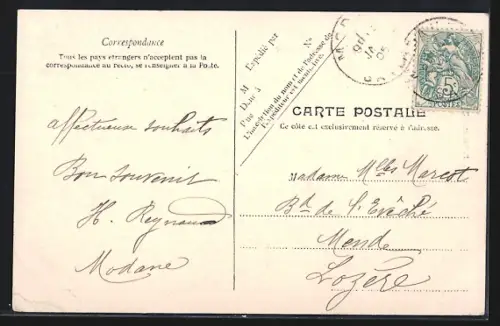 Correspondance
Tous les pays étrangers n'acceptent pas la
correspondance au recto, se renseigner à la Poste.
affectueux souhaits
Bon souvenir
H. Reynaud
Modane
Expédié par
M
No
Dem à
Rue
L'inscription du nom et de l'adresse de
l'expéditeur est
CARTE POSTALE
Ce côté est exclusivement réservé à l'adresse.
Madame
Bd de l'Evêché
Mende
Lozère
5